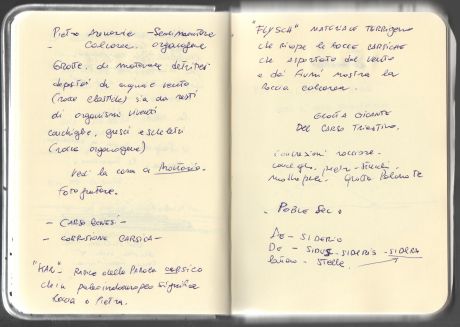 Pietra Arenaria - Sedimentaria
- Calcarea. organogene
Grotte. di materiale detritici
depositi di acqua e vento
(rocce clastiche) sia da resti
di organismi viventi
conchiglie, gusci e scheletri
(rocce organogene)
Vedi la casa a
fotografare.
- CARSO
- CORROSIONE CARSICA -
"KAR" - Radice della Parola CARSICO
che in paleoindoeuropeo significa
Roccia o Pietra.
"FLYSCH" MATERIALE TERRIGENO
che ricopre le ROCCE CARSICHE
che asportato dal vento
e dai fiumi mostra la
roccia calcarea.
GROTTA GIGANTE
DEL CARSO TRIESTINO.
increzioni rocciose
Grotta
- POBLE SEC
DE - SIDERIO
De - SIDUS - SIDERIS - SIDERA
latino - Stelle.